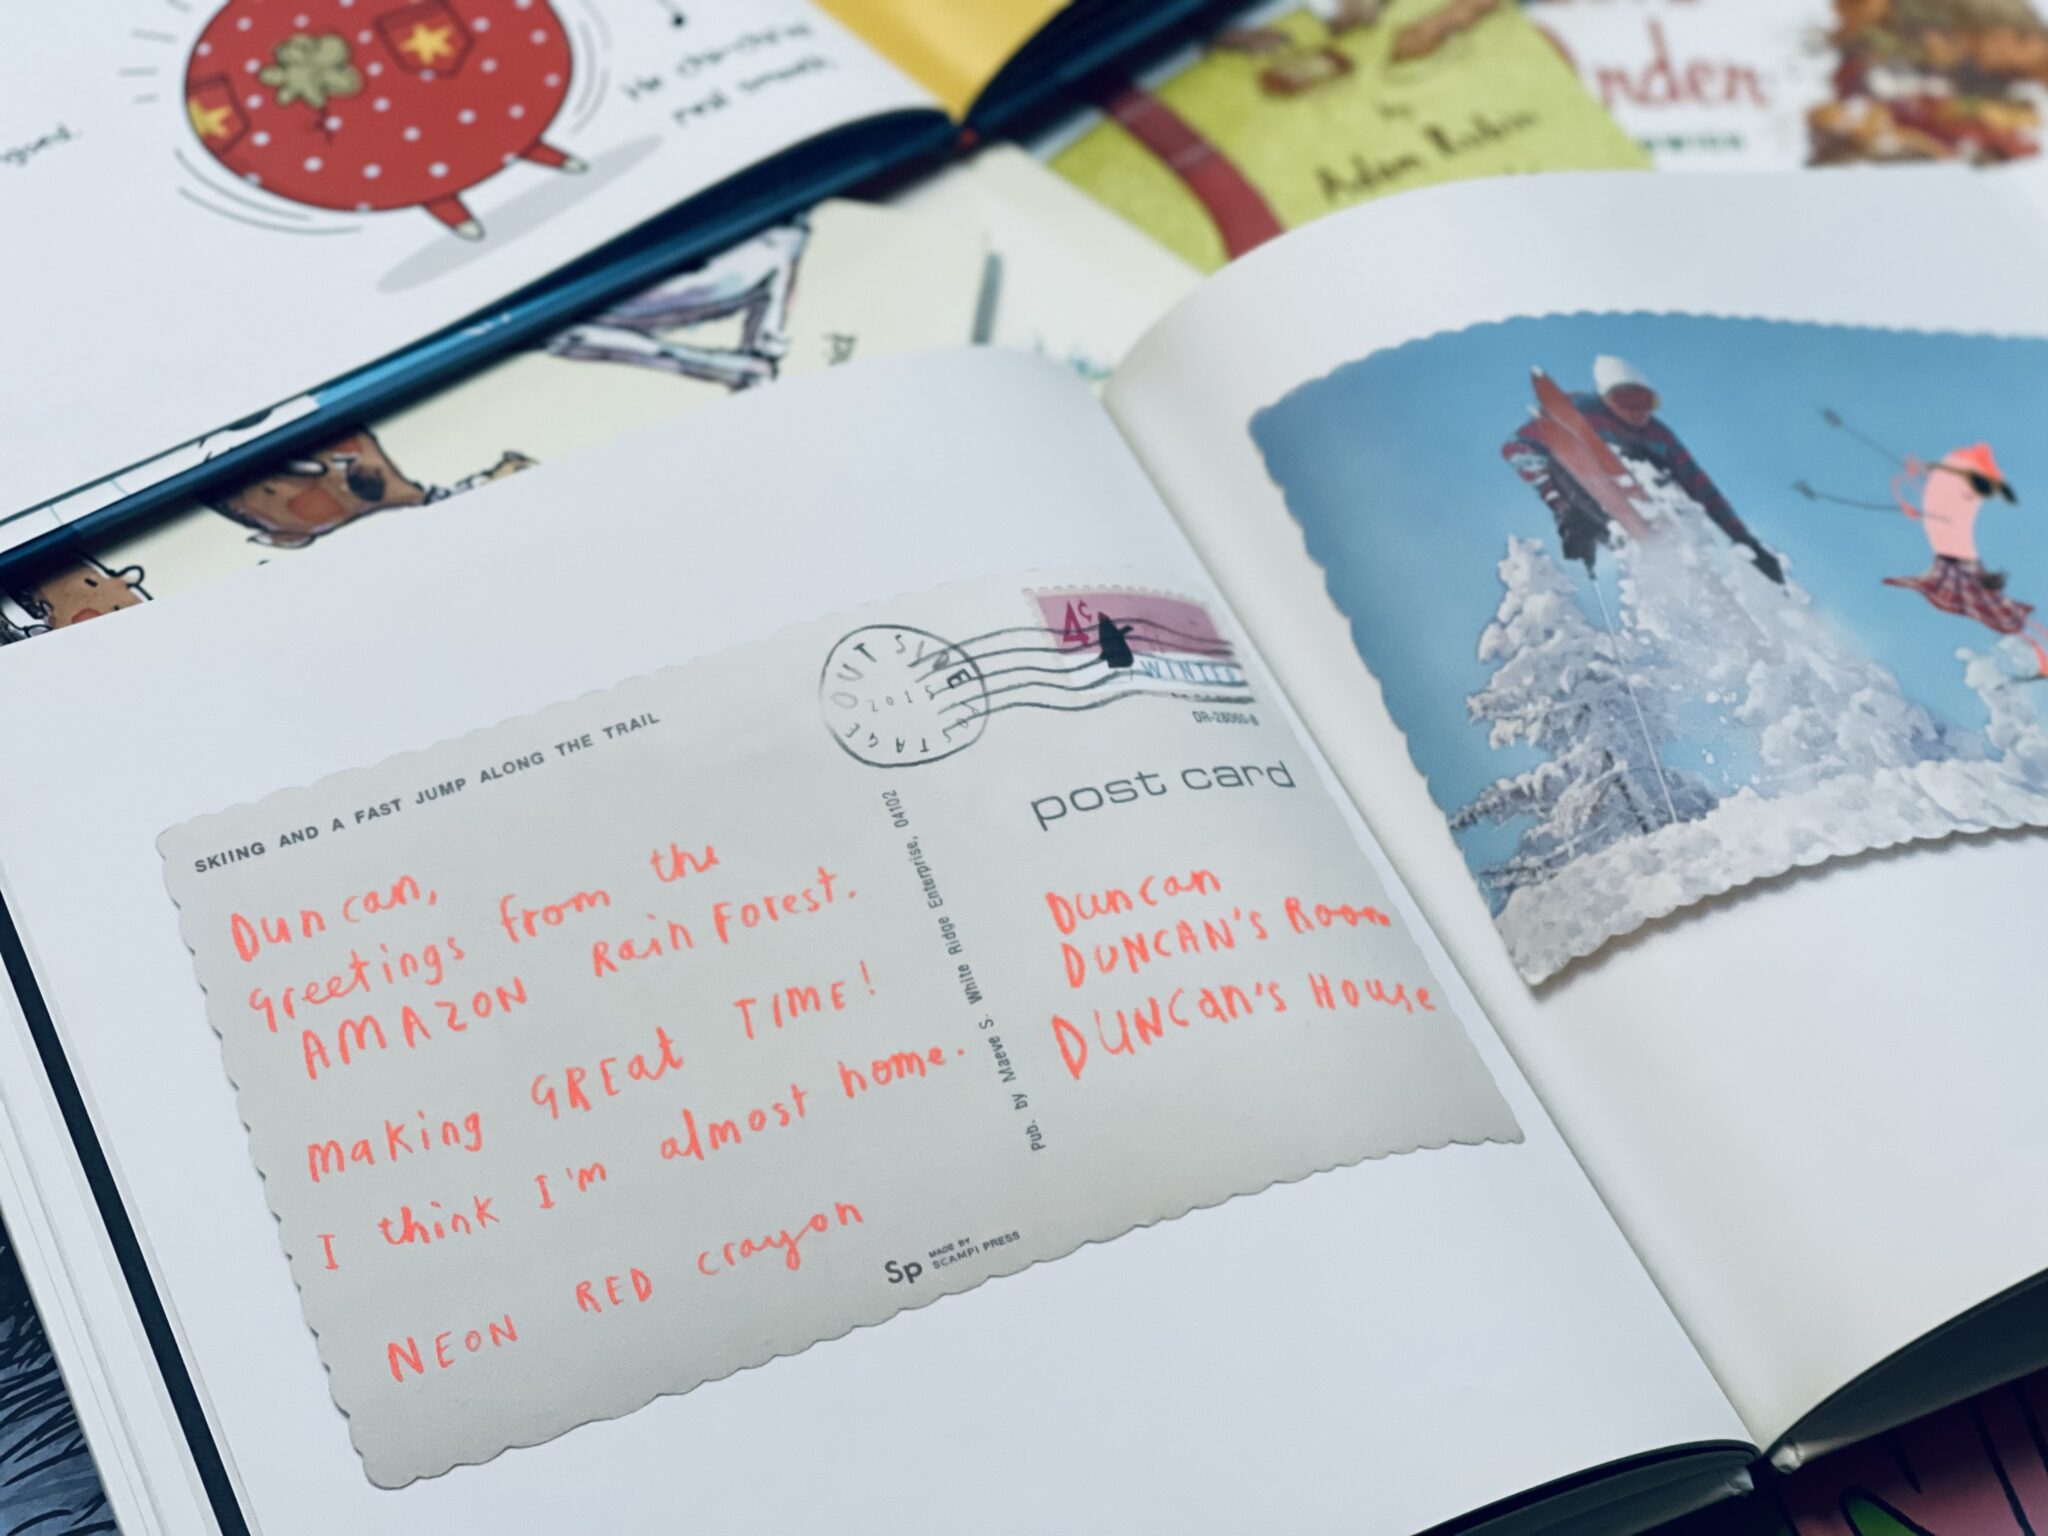 He cha-cha'd
real smooth.
by
Adam Rubin
SKIING AND A FAST JUMP ALONG THE TRAIL
Duncan,
greetings from the
AMAZON Rain Forest.
making GREat TIME!
I think I'm almost home.
NEON RED crayon
Sp MADE BY
SCAMPI PRESS
Pub. by Maeve S. White Ridge Enterprise, 04102
2015
4¢
WINTER
DR-28060-B
post card
Duncan
DUNCAN's Room
DUNCan's House